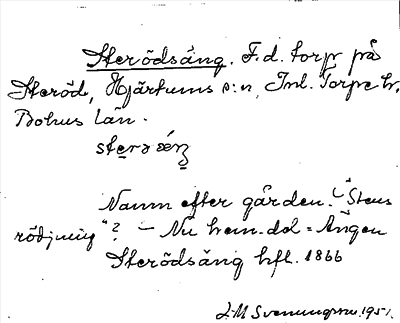 Sterödsäng. F.d. torp på
Steröd, Hjärtums s:n, Inl. Torpe hr,
Bohus län.
Namn efter gården. "Stens
rödjning"? – Nu hem.del = Ängen
Sterödsäng hfl. 1866
J.M Svenungson. 1951.